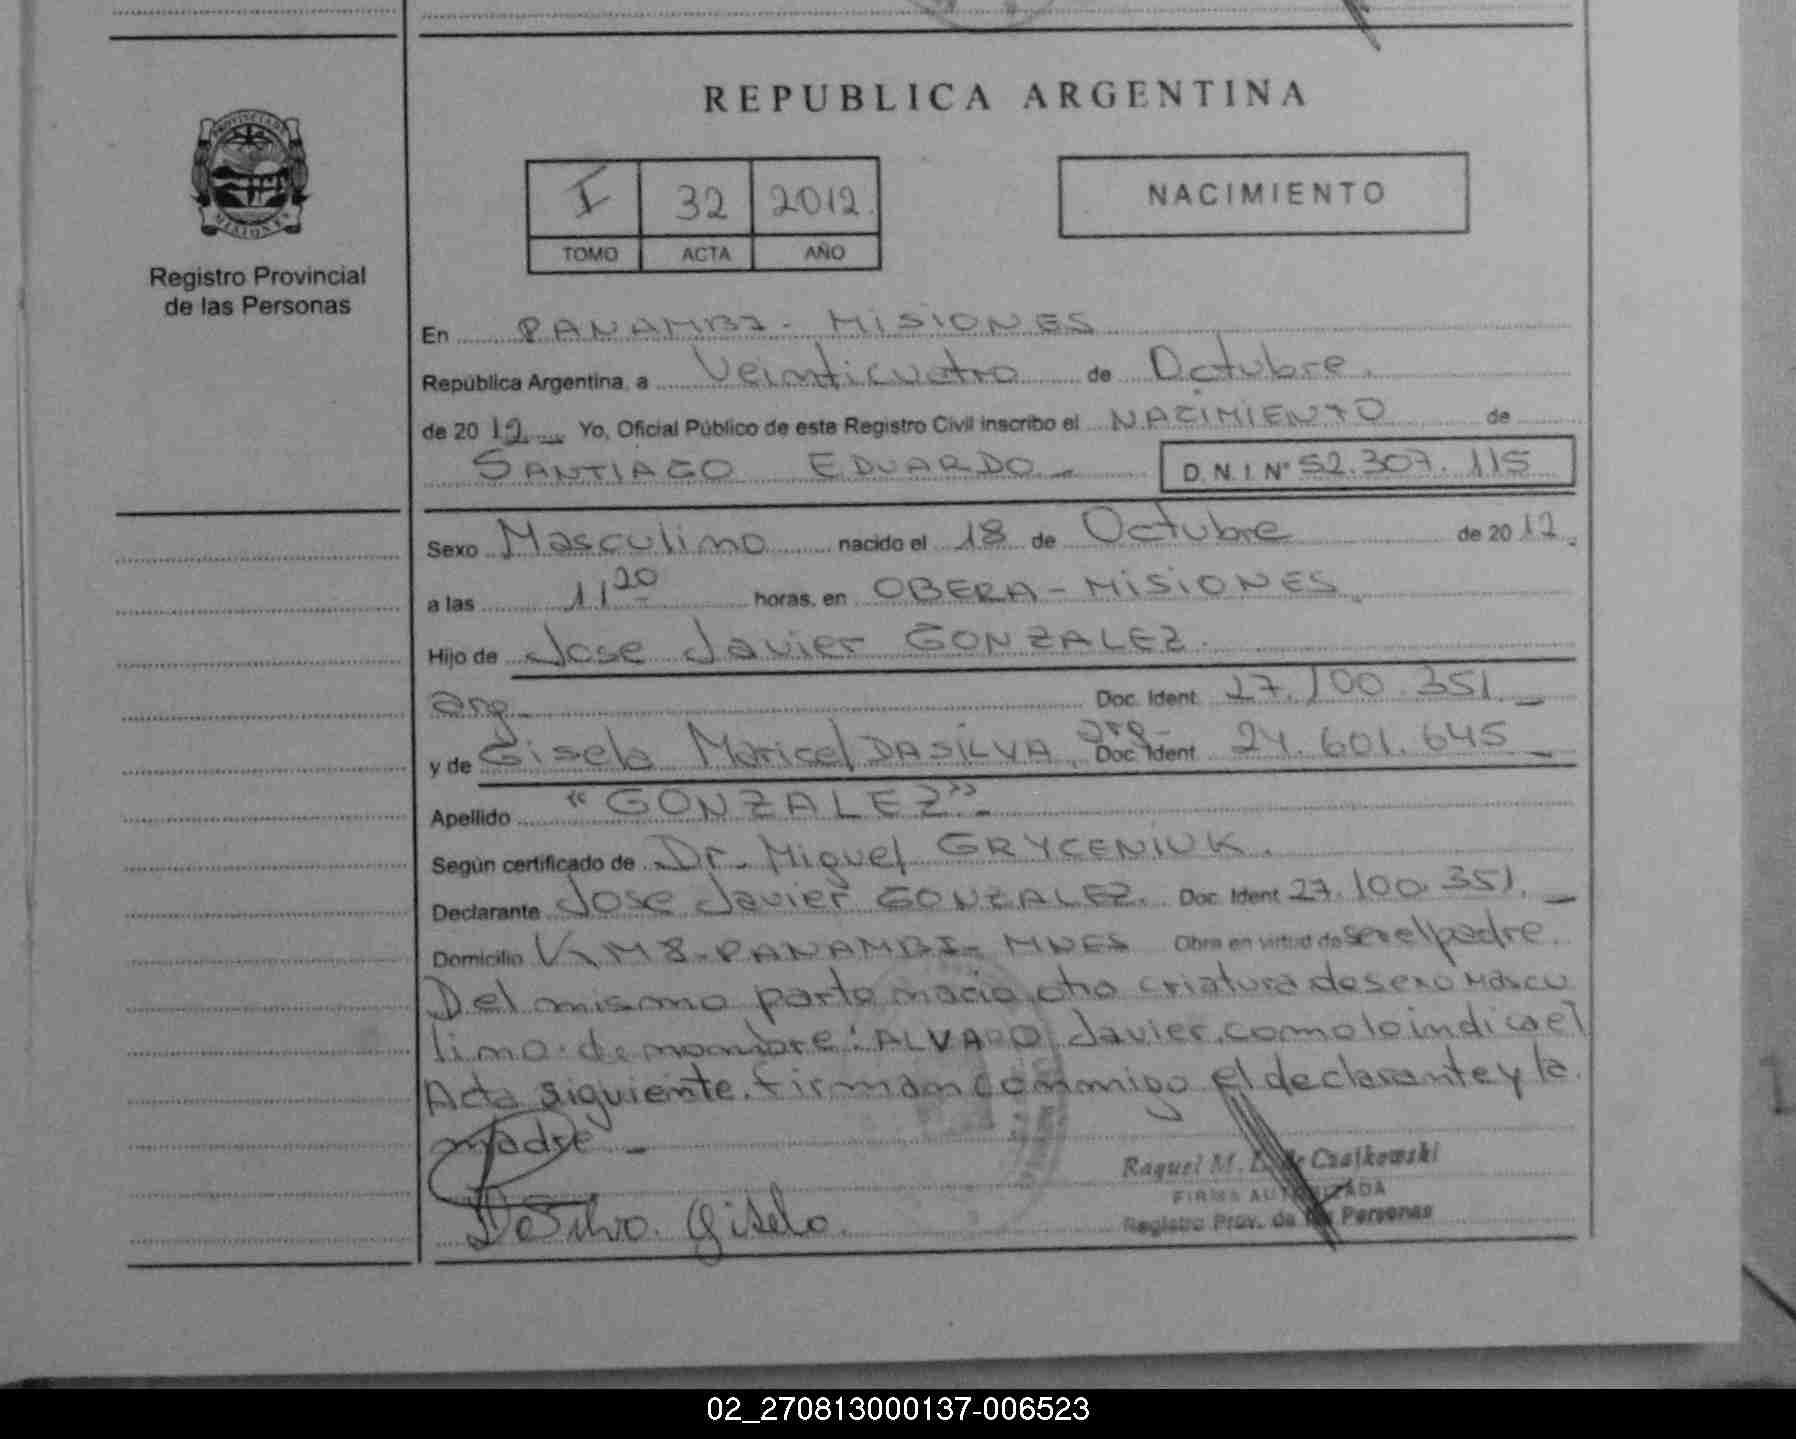 REPUBLICA ARGENTINA
PROVINCIA DE
MISIONES
Registro Provincial
de las Personas
I 32 2012.
TOMO ACTA AÑO
NACIMIENTO
En PANAMBI - MISIONES
República Argentina, a Veinticuatro de Octubre.
de 20 12 Yo, Oficial Público de este Registro Civil inscribo el NACIMIENTO de
SANTIAGO EDUARDO - D. N. I. Nº 52.307.115
Sexo Masculino nacido el 18 de Octubre de 20 12.
a las 11 20 horas, en OBERA - MISIONES.
Hijo de Jose Javier GONZALEZ.
arg. Doc. Ident. 27.100.351. -
y de Gisela Maricel DASILVA, arg- Doc. Ident. 24.601.645 -
Apellido "GONZALEZ" -
Según certificado de Dr. Miguel GRYCENIUK.
Declarante Jose Javier GONZALEZ. Doc. Ident 27.100.351. -
Domicilio KM 8 - PANAMBI - MNES Obra en virtud de ser el padre.
Del mismo parto nacio otra criatura de sexo Mascu
lino de nombre: ALVARO Javier, como lo indica el
Acta siguiente. firman conmigo el declarante y la
madre -
Raquel M. de Czajkowski
FIRMA AUTORIZADA
Registro Prov. de las Personas
DaSilva. Gisela.
02_270813000137-006523